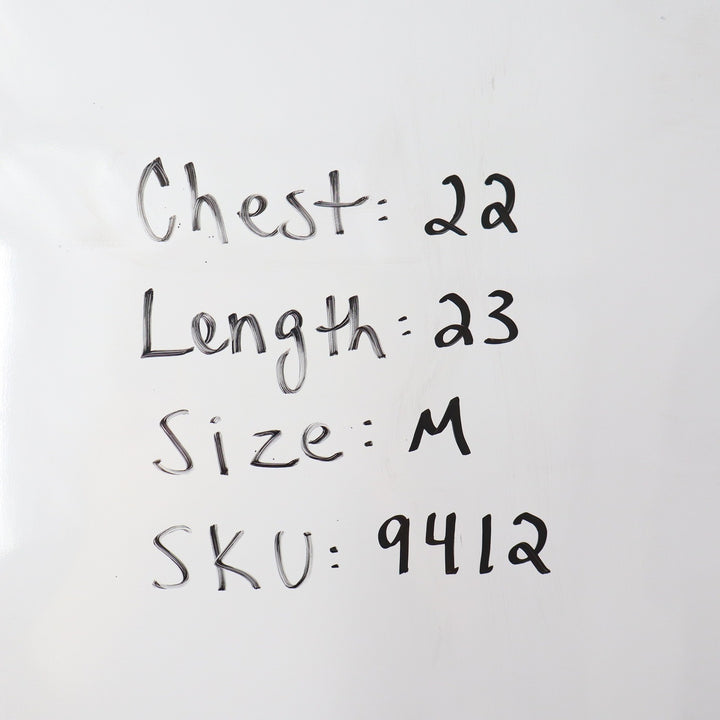 Chest: 22
Length: 23
Size: M
SKU: 9412